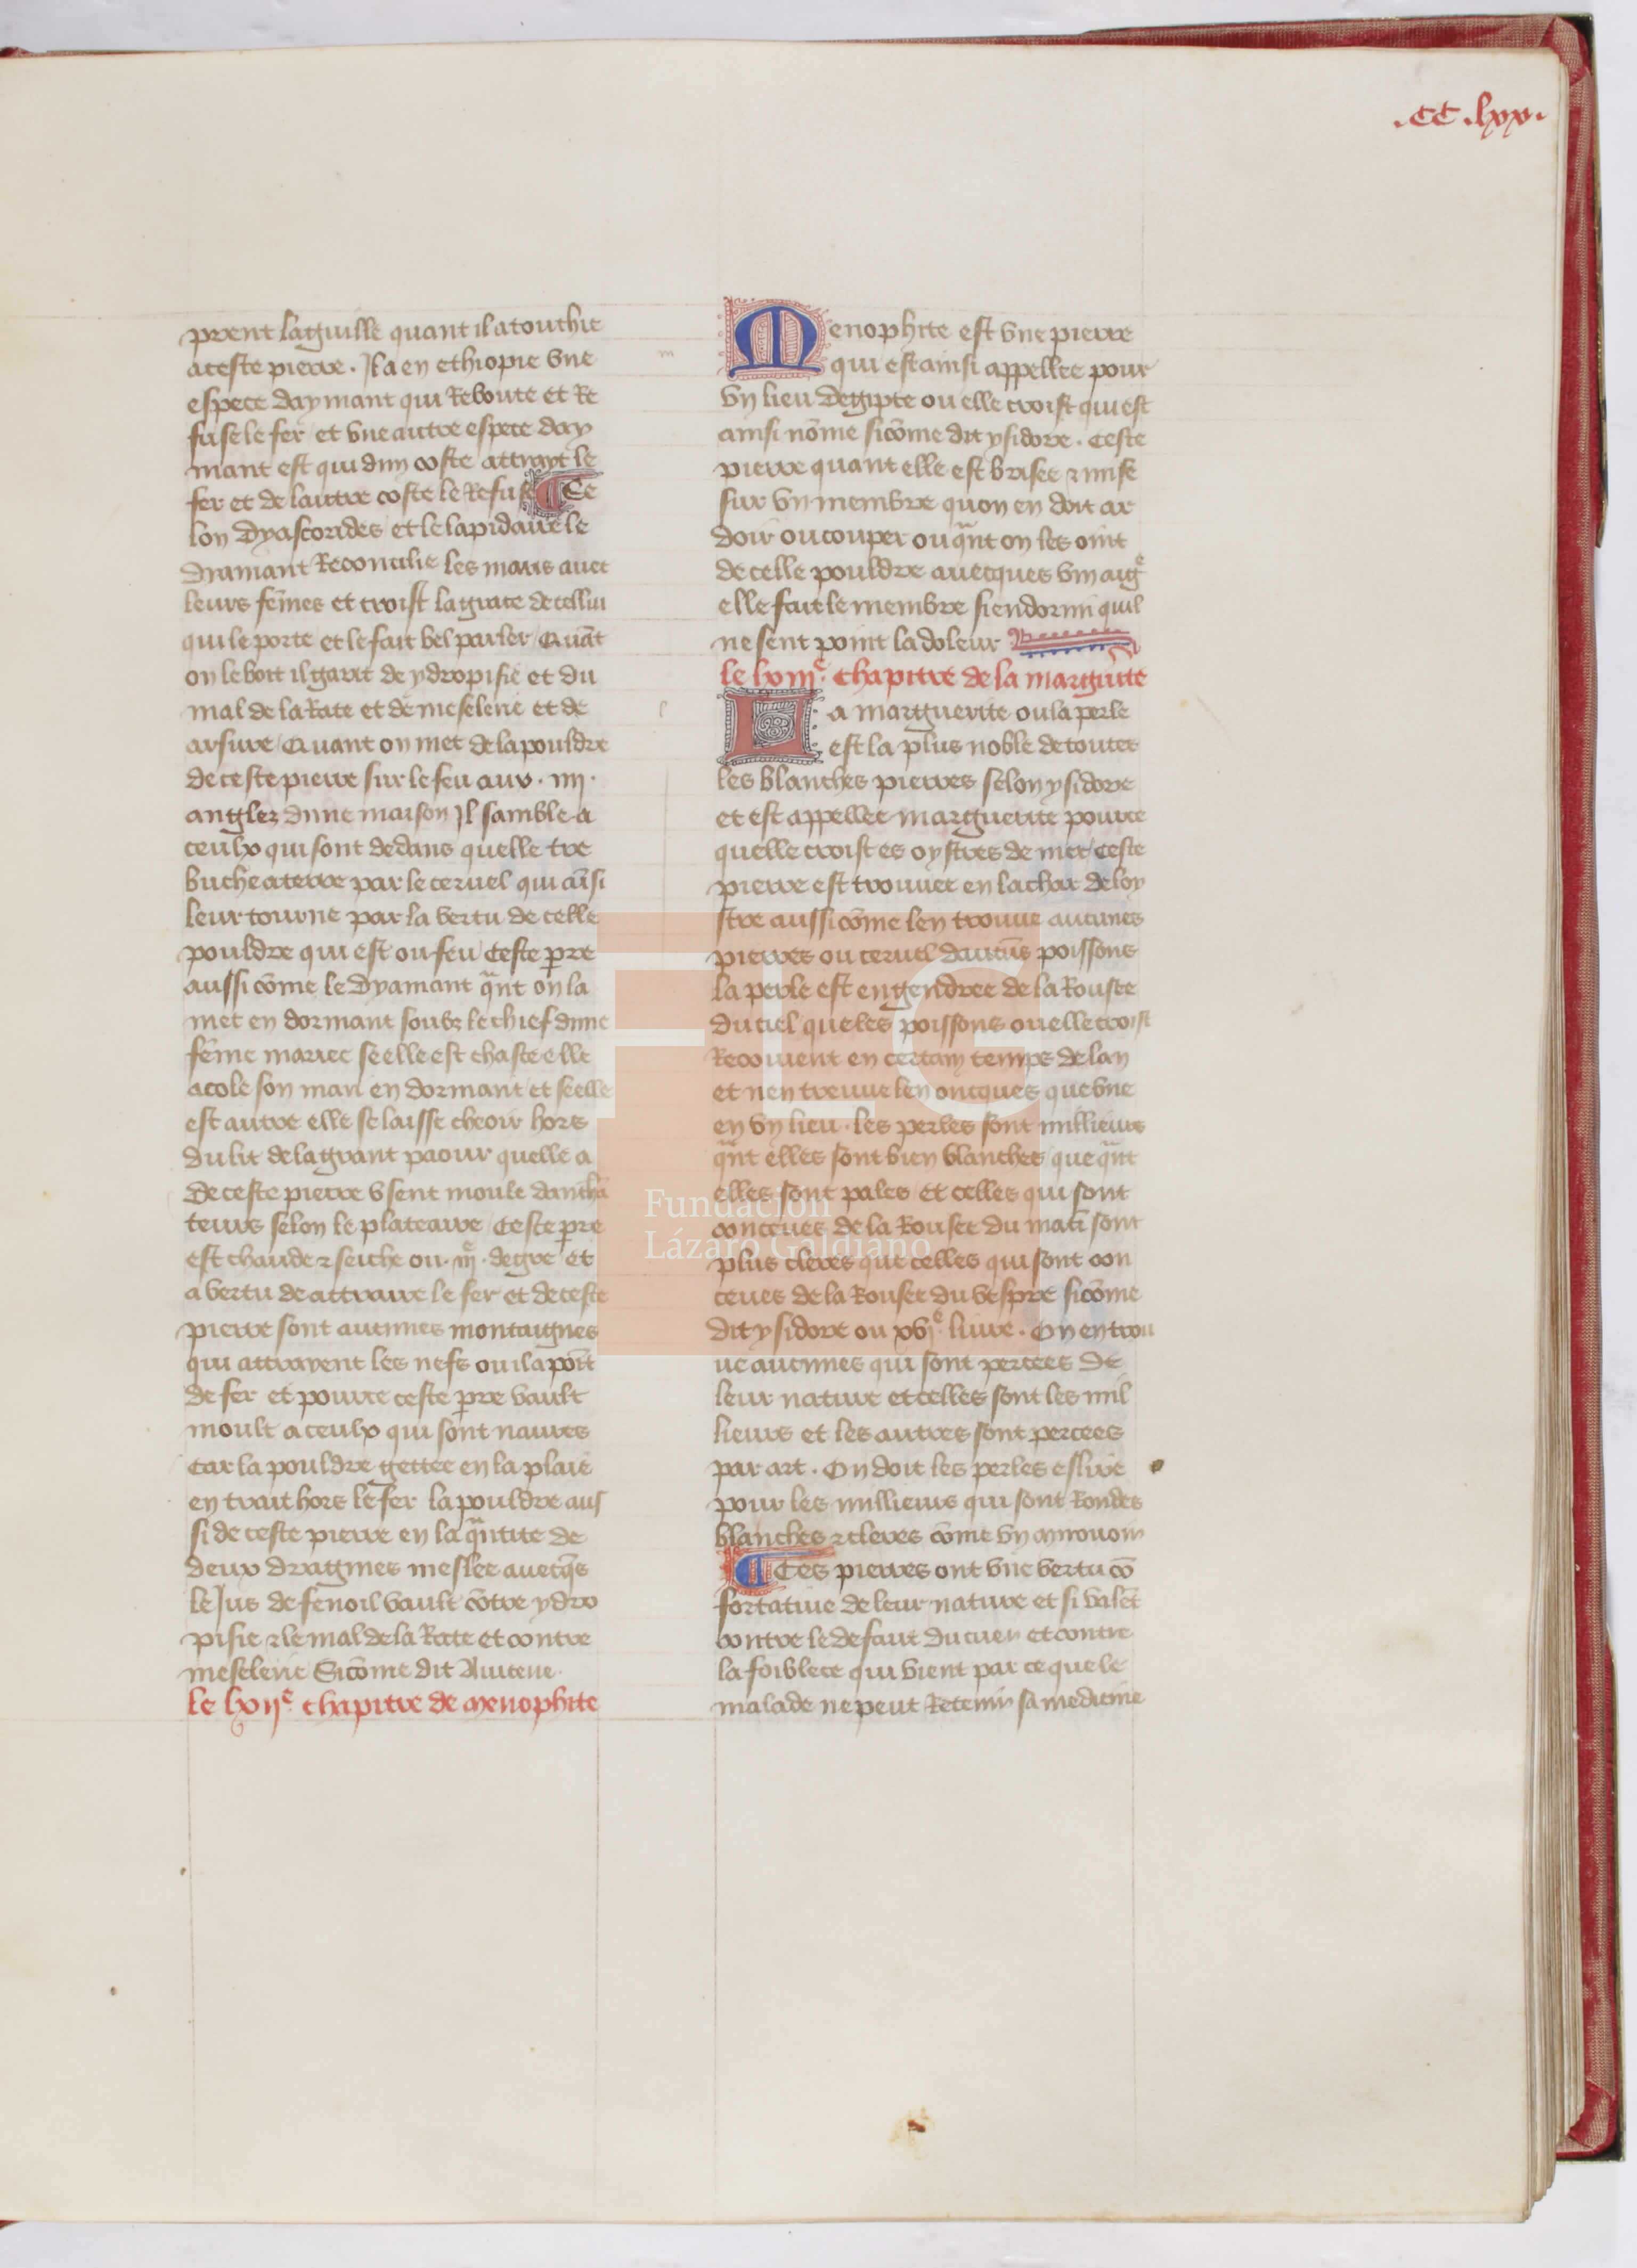 .CC.lxx.
prent laguille quant il a touchie
a ceste pierre. Il a en ethiopie vne
espece daymant qui Reboute et Re
fuse le fer et vne autre espece day
mant est qui dun coste attrayt le
fer et de lautre coste le Refuse ¶ Ce
lon dyascorides et le lapidaire le
dyamant Reconcilie les maris auec
leurs fēmes et croist la grace de cellui
qui le porte et le fait bel parler Quāt
on le boit il garit de ydropisie et du
mal de la Rate et de meselerie et de
arsure Quant on met de la pouldre
de ceste pierre sur le feu aux .iiii.
anglez dune maison Il samble a
ceulx qui sont dedans quelle tre
buche a terre par le ceruel qui aīsi
leur tourne par la vertu de celle
pouldre qui est ou feu Ceste pre
aussi cōme le dyamant qnt on la
met en dormant soubz le chief dune
fēme mariee se elle est chaste elle
acole son mari en dormant et se elle
est autre elle se laisse cheoir hors
du lit de la grant paour quelle a
De ceste pierre vsent moult danchā
teurs selon le plateaire Ceste pre
est chaude ⁊ seiche ou .iiiᵉ. degre et
a vertu de attraire le fer et de ceste
pierre sont aucunes montaignes
qui attrayent les nefs ou il a poīt
de fer et pource ceste pre vault
moult a ceulx qui sont naures
Car la pouldre gettee en la plaie
en trait hors le fer la pouldre aus
si de ceste pierre en la qntite de
deux dragmes meslee auecqs
le Jus de fenoil vault cōtre ydro
pisie ⁊ le mal de la Rate et contre
meselerie Sicōme dit Auicene.
le lxiiᵉ. chapitre de menophite
Menophite est vne pierre
qui est ainsi appellee pour
vn lieu degipte ou elle croist qui est
ainsi nōme sicōme dit ysidore. Ceste
pierre quant elle est brisee ⁊ mise
sur vn membre quon en doit ar
doir ou couper ou qnt on les oint
de celle pouldre auecques vin aigᵉ
elle fait le membre si endormi quil
ne sent point la doleur
le lxiiiᵉ. chapitre de la margerite
La marguerite ou la perle
est la plus noble de toutes
les blanches pierres selon ysidore
et est appellee marguerite pource
quelle croist es oystres de mer Ceste
pierre est trouuee en la char de loy
stre aussi cōme len trouue aucunes
pierres ou ceruel daucūs poissons
la perle est engendree de la Rousee
du ciel que les poissons ou elle croist
Recoiuent en certain temps de lan
et nen treuue len oncques que vne
en vn lieu. les perles sont millieurs
qnt elles sont bien blanches que qnt
elles sont pales et celles qui sont
conceues de la Rousee du matī sont
plus cleres que celles qui sont con
ceues de la Rousee du vespre sicōme
dit ysidore ou xviᵉ. liure. On en trou
ue aucunes qui sont percees de
leur nature et celles sont les mil
lieurs et les autres sont percees
par art. On doit les perles eslire
pour les millieurs qui sont Rondes
blanches ⁊ cleres cōme vn mirouoir
¶ Ces pierres ont vne vertu cō
fortatiue de leur nature et si valēt
contre le defaut du cuer et contre
la foiblece qui vient par ce que le
malade ne peut Retenir sa medicine
FLG
Fundación
Lázaro Galdiano